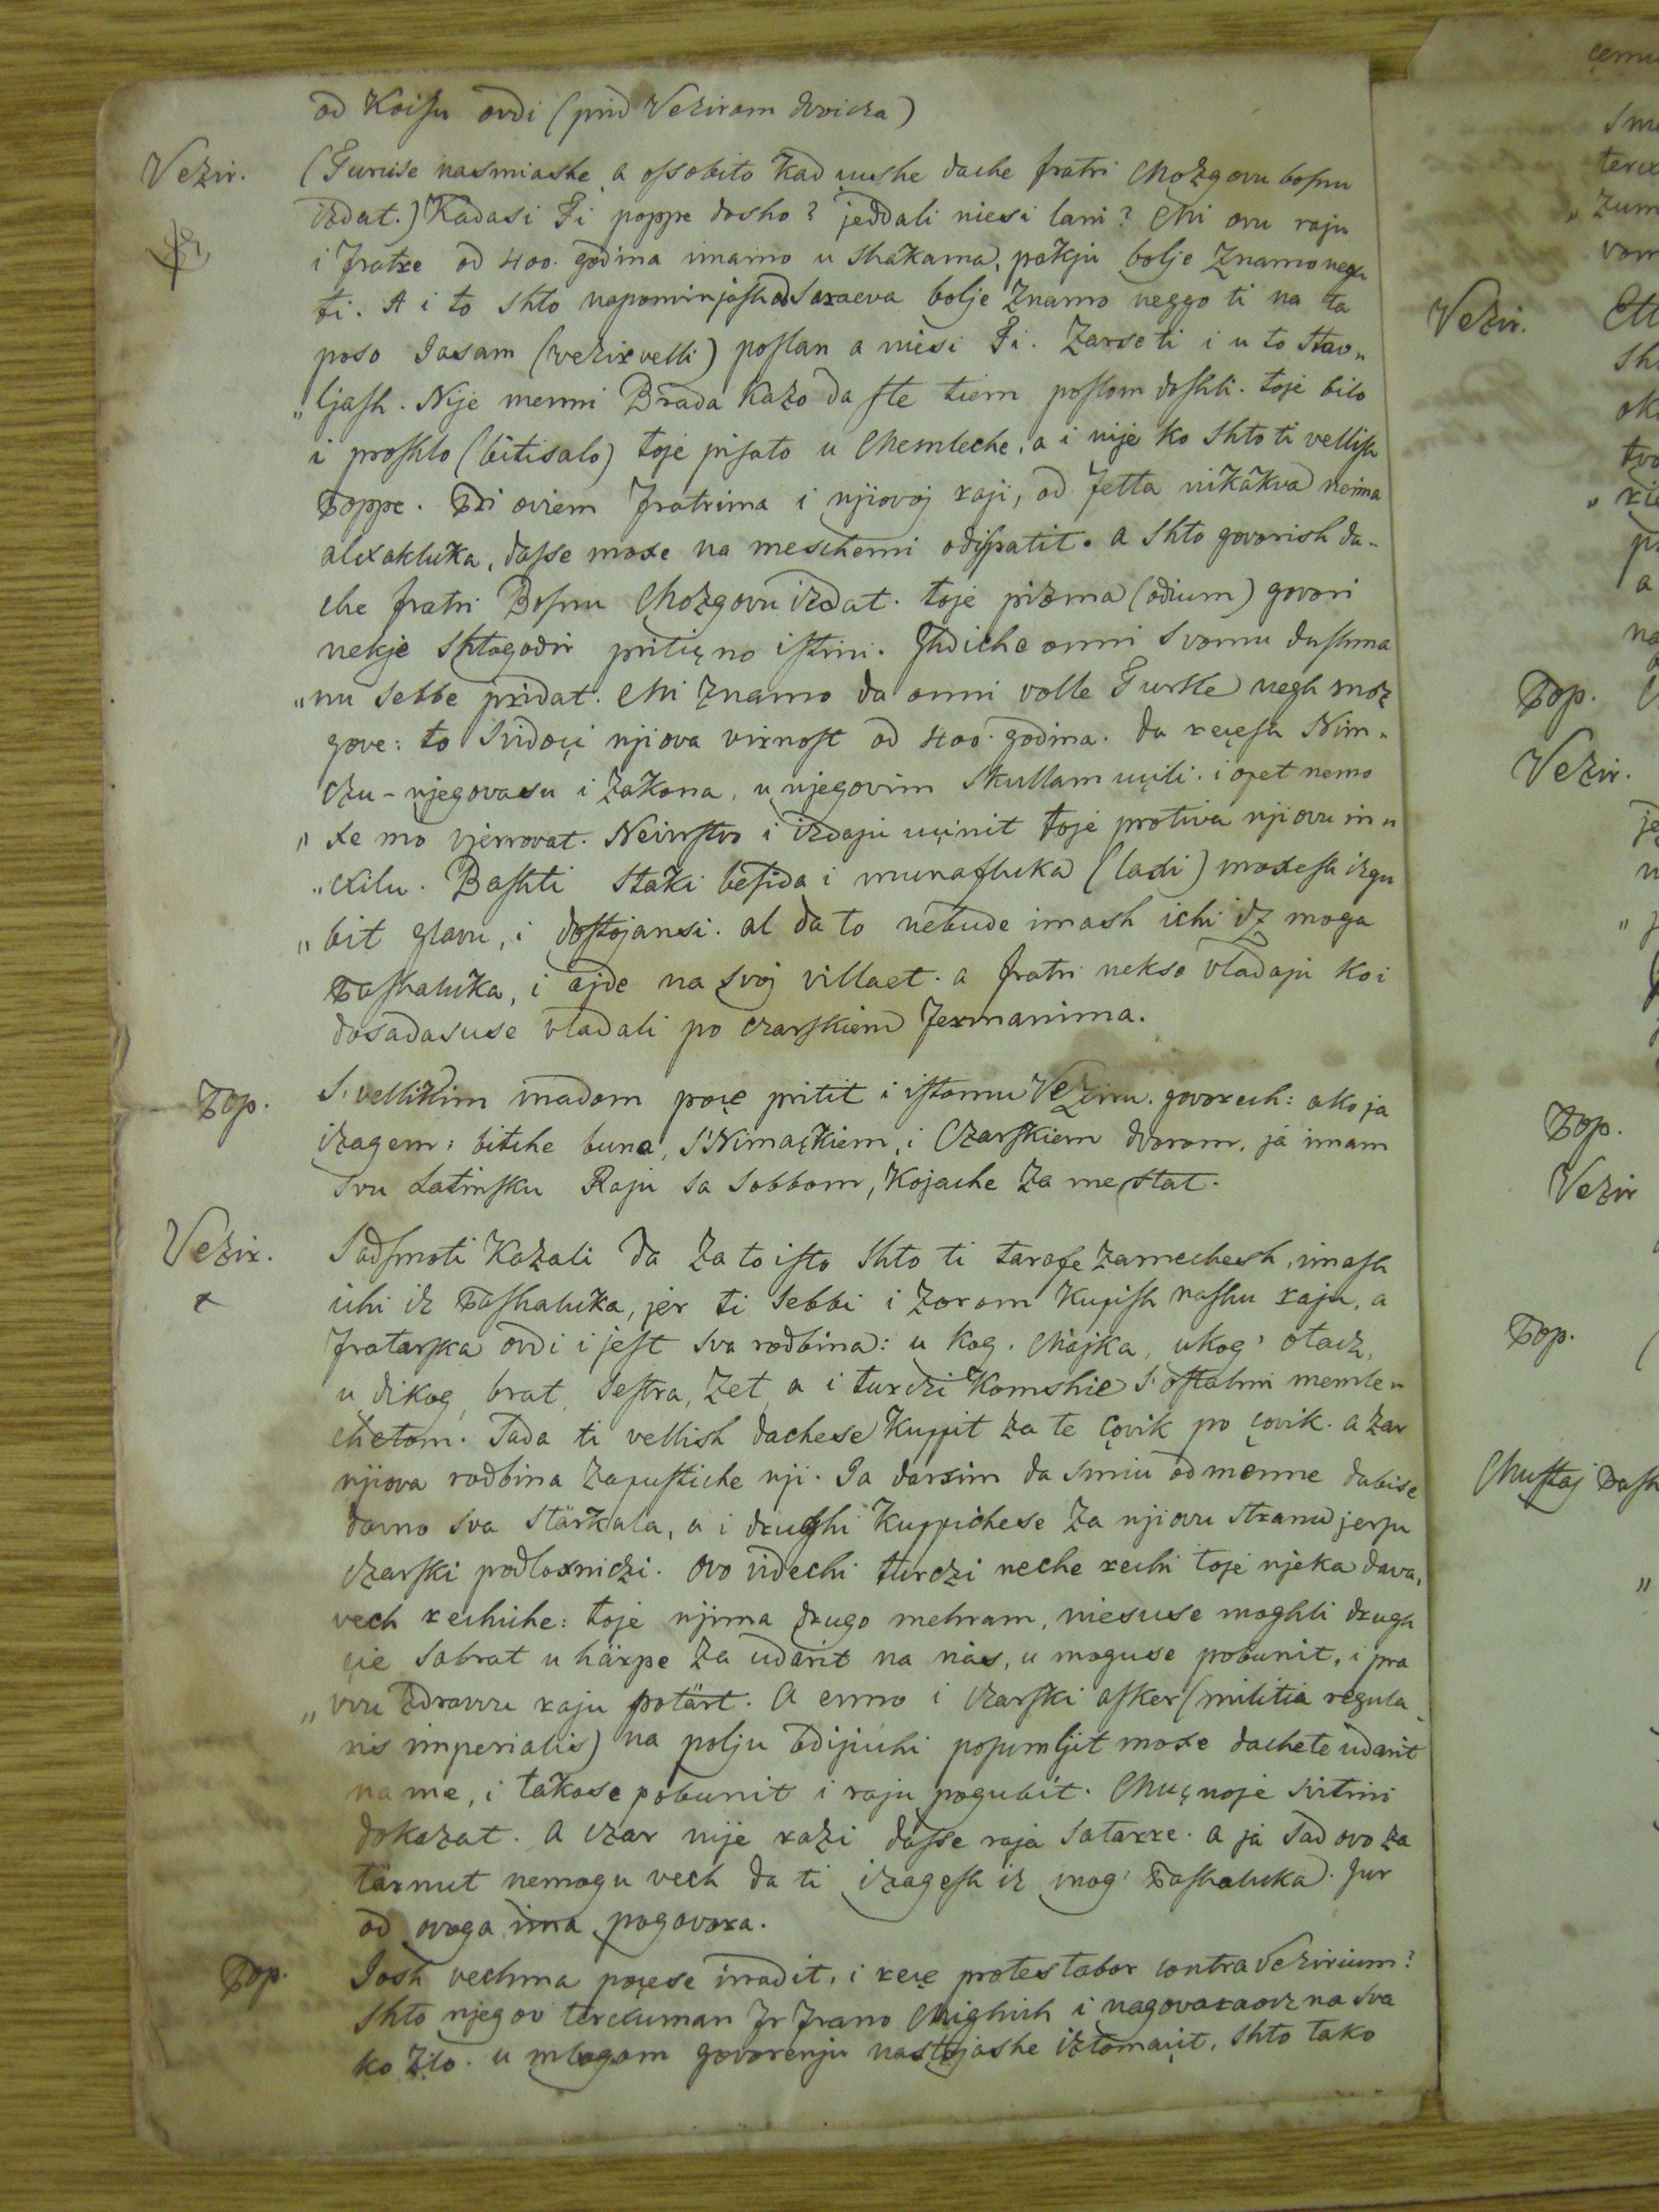 od Koisu ovdi (prid Veziram dvicza)
Vezir. (Turcise nasmiashe, a ossobito kad çushe dache fratri Mozgovu bosnu
izdat.) Kadasi Ti poppe dosho? jeddali niesi lani? Mi ovu raju
i fratre od 400. godina imamo u shakama, pakju bolje znamo negh
ti. A i to shto napominjash od Saraeva bolje znamo neggo ti na ta
poso Jasam (vezir velli) poslan a niesi Ti. Zarse ti i u to stav„
„ljash. Nije menni Brada kazo da ste tiem poslom doshli. toje bilo
i proshlo (bitisalo) toje pisato u Memleche, a i nije ko shto ti vellish
Poppe. Pri oviem fratrima i njiovoj raji, od fetta nikakva neima
alixakluka, dasse moxe na meschemi odispatit. a shto govorish da-
che fratri Bosnu Mozgovu izdat. toje pizma (odium) govori
nekje shtogodir pritiçno istini. Gdiche onni svomu dushma
„nu sebbe pridat. Mi znamo da onni volle Turke negh moz
gove: to svidoçi njiova virnost od 400. godina. da reçesh Nim„
czu - njegovasu i zakona, u njegovim skullam uçili. i opet nemo
„xe mo vjerrovat. Neivrstvo i izdaju uçinit toje protiva njiovu in„
„cxilu. Bashti staki besida i munafluka (laxi) moxesh izgu
„bit glavu, i dostojansi. al da to nebude imash ichi iz moga
Pashaluka, i ajde na svoj villaet. a fratri nekse vladaju koi
dosadasuse vladali po czarskiem fermanima.
Pop. S'vellikim inadom poçe pritit i istomu Veziru. govorech: ako ja
izagem: bitche buna, s'Nimaçkiem, i Czarskiem dvorom, ja imam
svu Latinsku Raju sa sobbom, kojache za me stat.
Vezir. Sadsmoti kazali da za to isto shto ti tarafe zamechesh, imash
ichi iz Pashaluka, jer ti sebbi i zorom kupish nashu raju, a
fratarska ovdi i jest sva rodbina: u kog. Majka, ukog' otacz,
u dikog, brat, sestra, zet, a i turczi komshie s'ostalim memle„
chetom. Tada ti vellish dachese kuppit za te çovik po çovik. a zar
njiova rodbina zapustiche nji. Ja darxim da smiu od menne dabise
davno sva stärkala, a i drughi kuppichese za njiovu stranu jersu
czarski podloxniczi. ovo videchi turczi neche rechi toje njeka dava,
vech rechiche: toje njima drugo mehram, niesuse moghli drugh
çie sabrat u härpe za udarit na nas, u moguse pobunit, i pra
„vvu zdravvu raju potärt. A evvo i czarski asker (militia regula
ris imperialis) na polju bdijuchi posumljit moxe dachete udarit
na me, i takose pobunit i raju pogubit. Muçnoje svitini
dokazat. a czar nije razi dasse raja satarre. a ja sad ovo za
tärnut nemogu vech da ti izagesh iz mog' Pashaluka. Jur
od ovoga ima pogovora.
Pop. Josh vechma poçese inadit, i reçe protestabor contra Vezirium?
Shto njegov tercuman fr Frano Mighich i nagovaraocz na sva
ko zlo. u mlogom govorenju nastojashe iztomaçit, shto tako